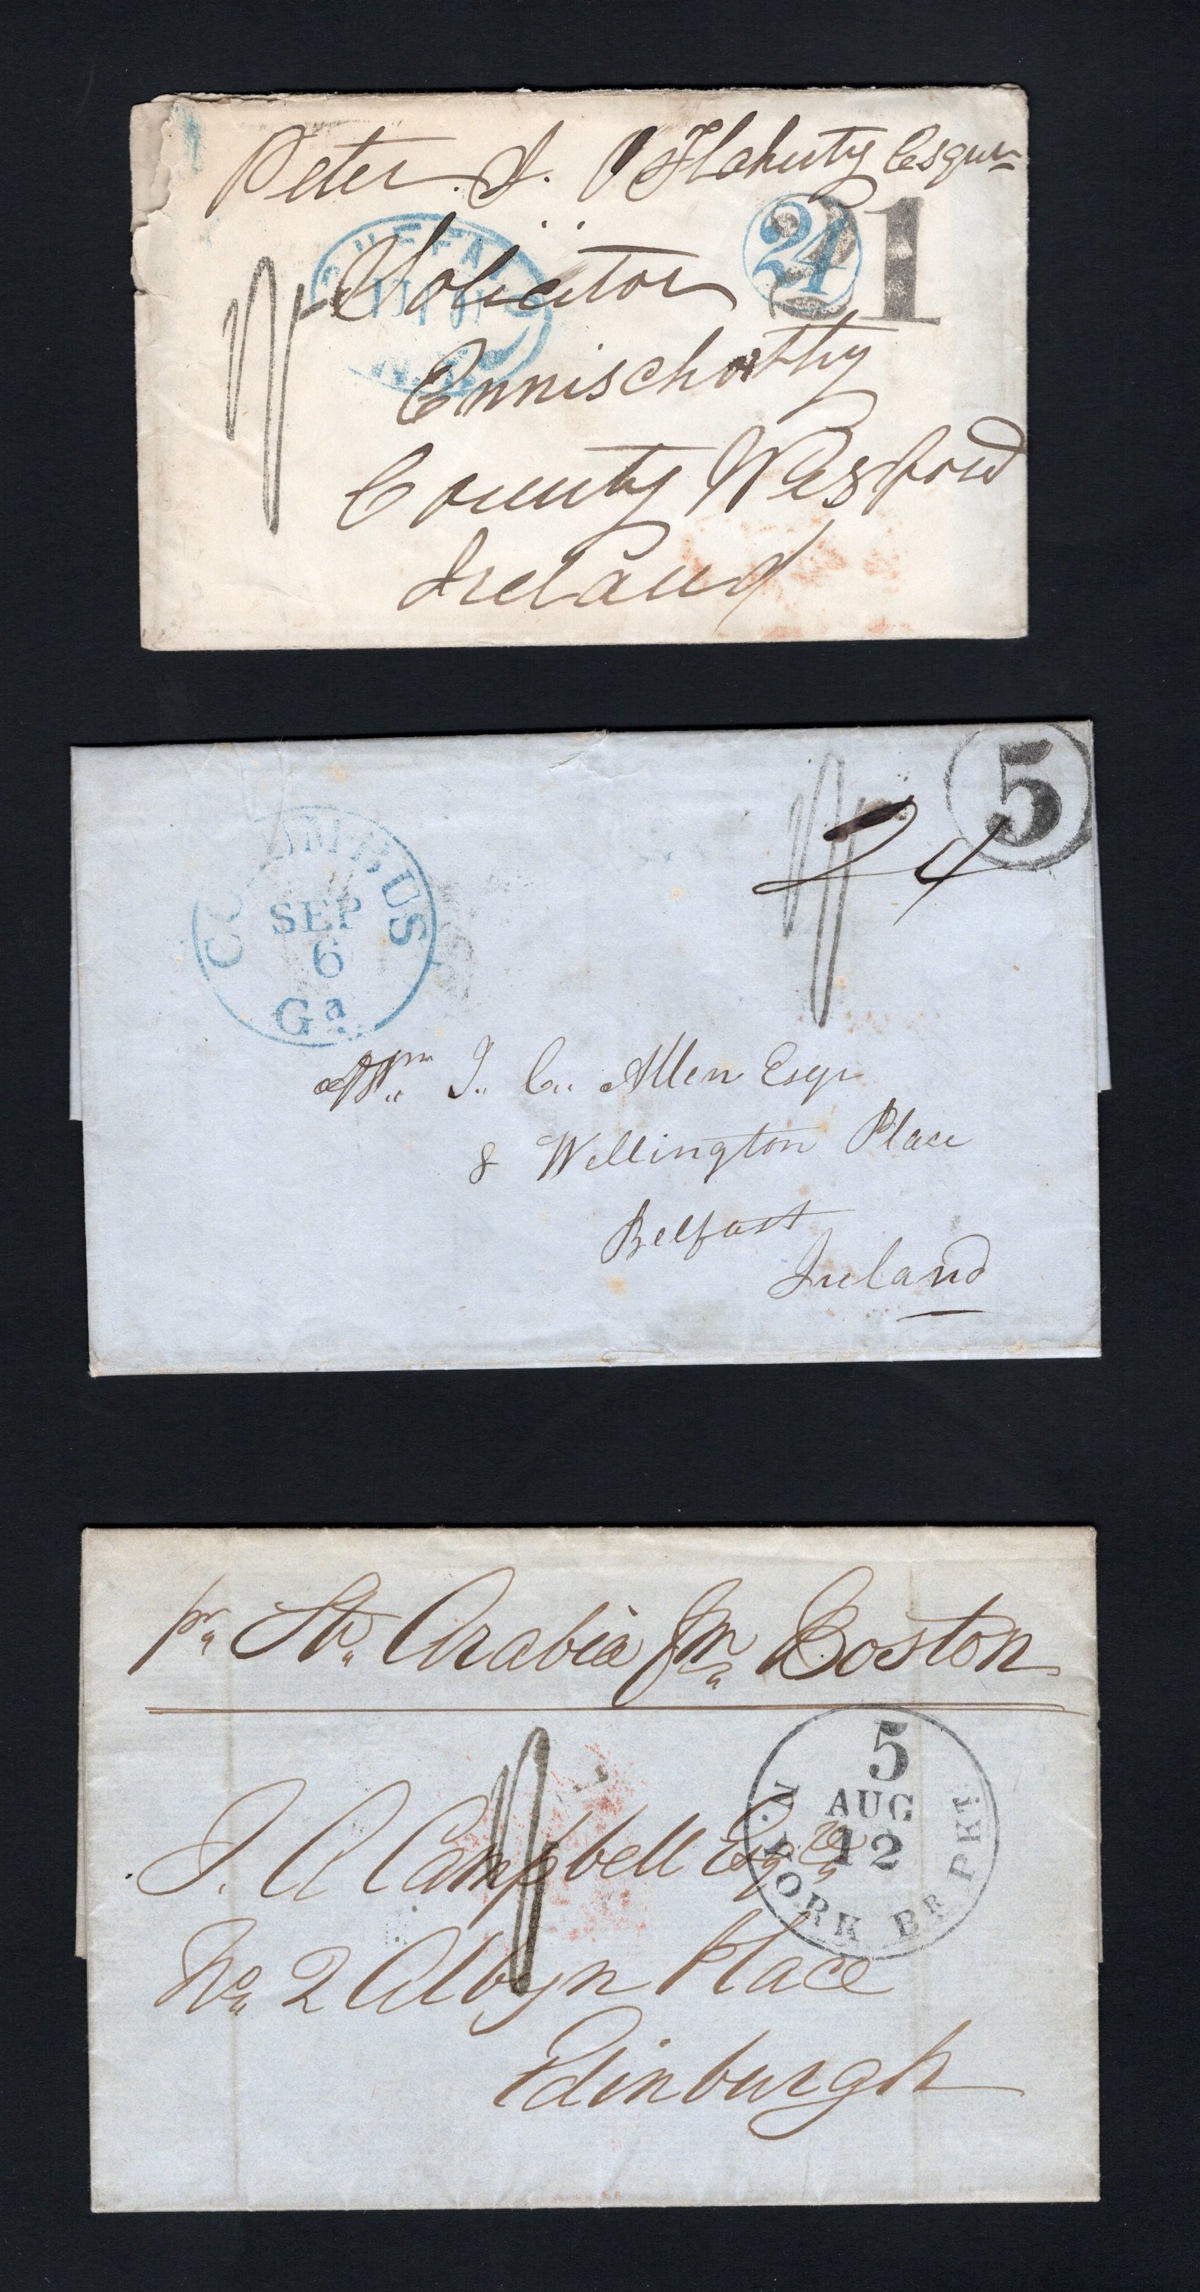 Peter. J. O'Flaherty Esqure
24
21
BUFFALO
Solicitor
N.Y.
Ennischorthy
County Wexford
Ireland
5
24
COLUMBUS
SEP
6
Ga
Wm J. C. Allen Esqr
8 Wellington Place
Belfast
Ireland
pr Str. Arabia fm Boston
5
AUG
12
N. YORK BR PKT.
J. A Campbell Esqre
No 2 Albyn Place
Edinburgh